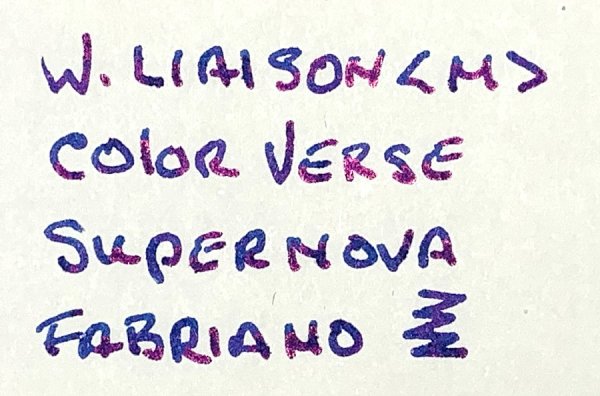 W. LIAISON <M>
COlOR VERSE
SUPERNOVA
FABRIANO